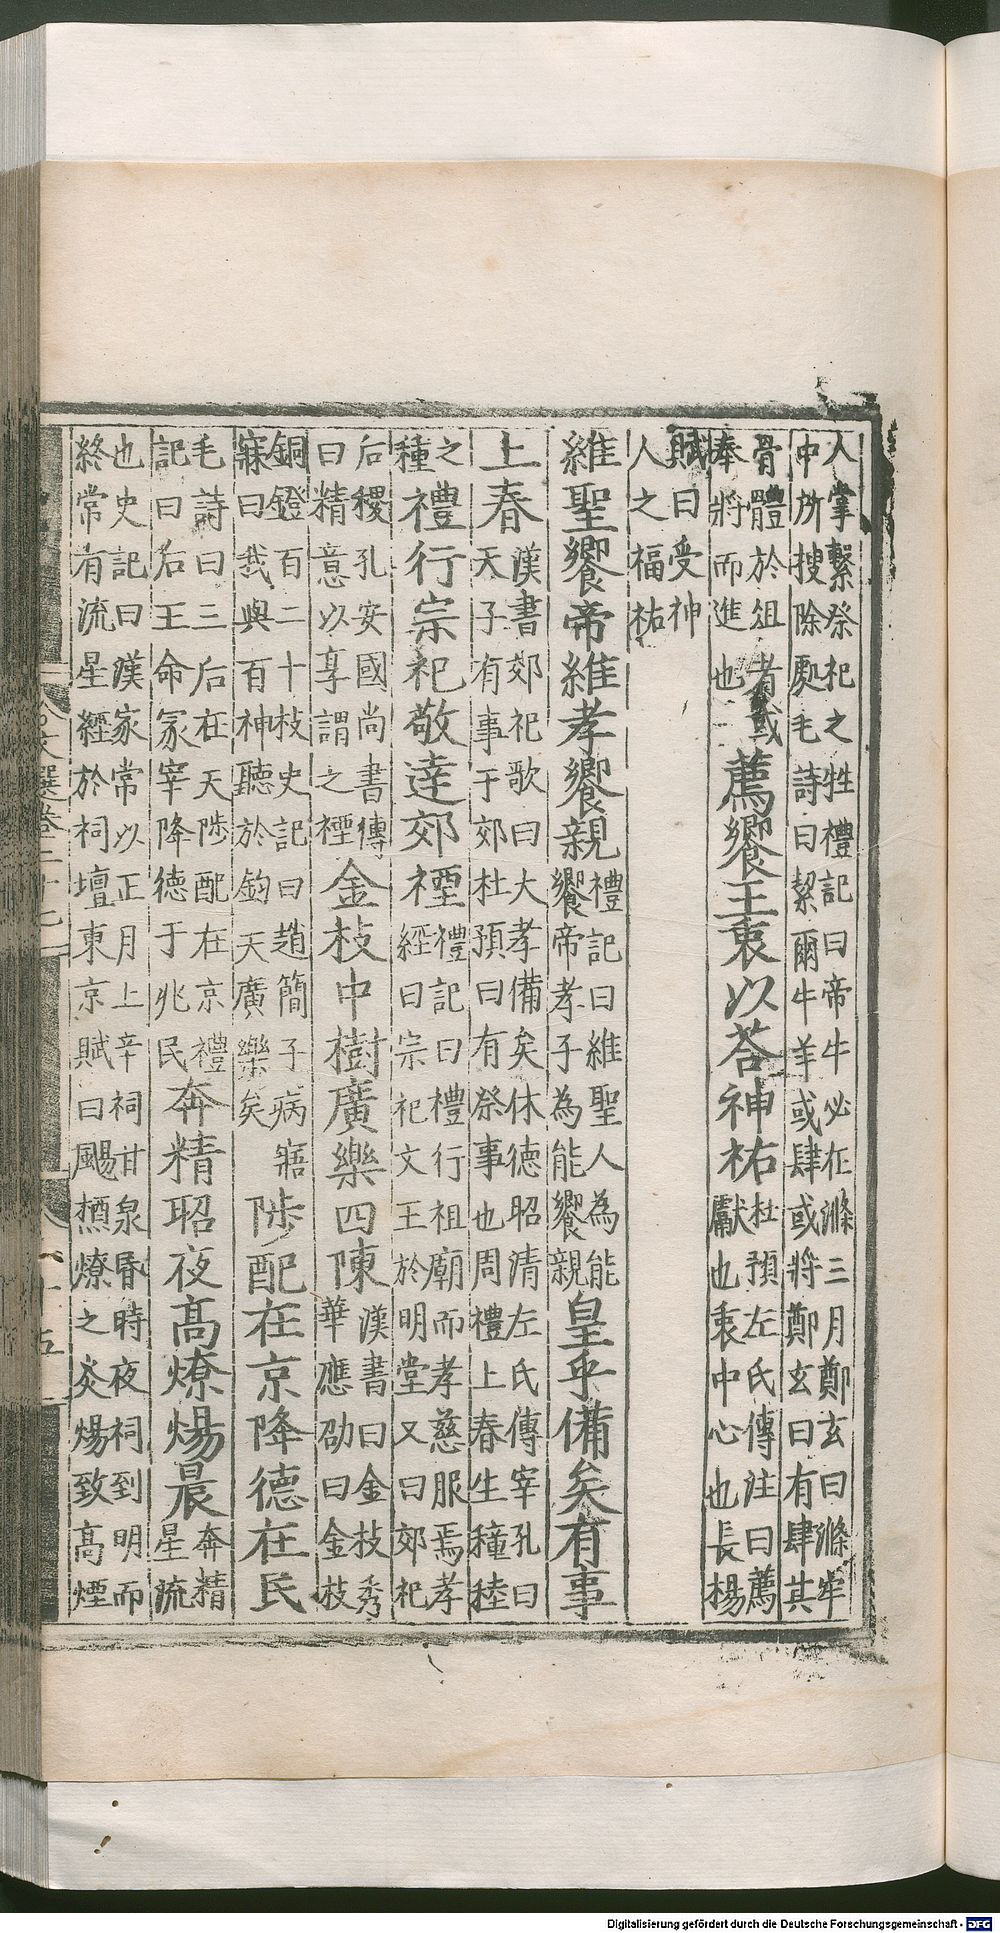 人掌繫祭祀之牲禮記曰帝牛必在滌三月鄭玄曰滌牢
中所搜除處毛詩曰絜爾牛羊或肆或將鄭玄曰有肆其
骨體於俎者或奉將而進也薦饗王衷以荅神祐杜預左氏傳注曰薦獻也衷中心也長楊
賦曰受神人之福祐
維聖饗帝維孝饗親禮記曰維聖人為能饗帝孝子為能饗親皇乎備矣有事
上春漢書郊祀歌曰大孝備矣休德昭清左氏傳宰孔曰天子有事于郊杜預曰有祭事也周禮上春生穜稑
之種禮行宗祀敬達郊禋禮記曰禮行祖廟而孝慈服焉孝經曰宗祀文王於明堂又曰郊祀
后稷孔安國尚書傳曰精意以享謂之禋金枝中樹廣樂四陳漢書曰金枝秀華應劭曰金枝
銅鐙百二十枝史記曰趙簡子病寤寐曰我與百神聽於鈞天廣樂矣陟配在京降德在民
毛詩曰三后在天陟配在京禮記曰后王命冢宰降德于兆民奔精昭夜高燎煬晨奔精星流
也史記曰漢家常以正月上辛祠甘泉昏時夜祠到明而
終常有流星經於祠壇東京賦曰颺槱燎之炎煬致高煙
文選卷二十七
十五
Digitalisierung gefördert durch die Deutsche Forschungsgemeinschaft - DFG